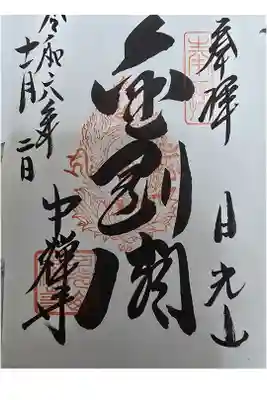 奉拝
日光山
金剛閣
中禅寺
令和六年
十一月二日